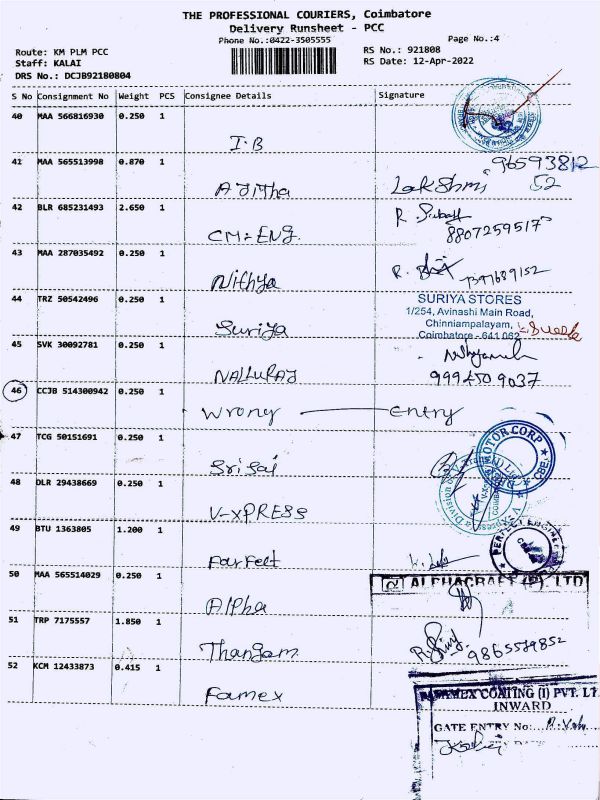 THE PROFESSIONAL COURIERS, Coimbatore
Delivery Runsheet - PCC
Phone No.:0422-3505555
Page No.:4
Route: KM PLM PCC
RS No.: 921808
Staff: KALAI
RS Date: 12-Apr-2022
DRS No.: DCJB92180804
S No Consignment No Weight PCS Consignee Details Signature
40 MAA 566816930 0.250 1
I.B
41 MAA 565513998 0.870 1
96593812
52
Ajitha Lakshmi
42 BLR 685231493 2.650 1
CM-ENG. 8807259517
43 MAA 287035492 0.250 1
Nithya
44 TRZ 50542496 0.250 1
SURIYA STORES
1/254, Avinashi Main Road,
Chinniampalayam,
Coimbatore - 641 062
Suriya
45 SVK 30092781 0.250 1
NALLURAJ 9994509037
46 CCJB 514300942 0.250 1
Wrong Entry
47 TCG 50151691 0.250 1
MOTOR CORP
CBE
Sri Sai
48 DLR 29438669 0.250 1
V-XPRESS
49 BTU 1363805 1.200 1
Farfelt
50 MAA 565514029 0.250 1
ALPHACRAFT (P). LTD
Alpha
51 TRP 7175557 1.850 1
Thangam 9865539852
52 KCM 12433873 0.415 1
Famex
FAMEX COATING (I) PVT. LT
INWARD
GATE ENTRY No: